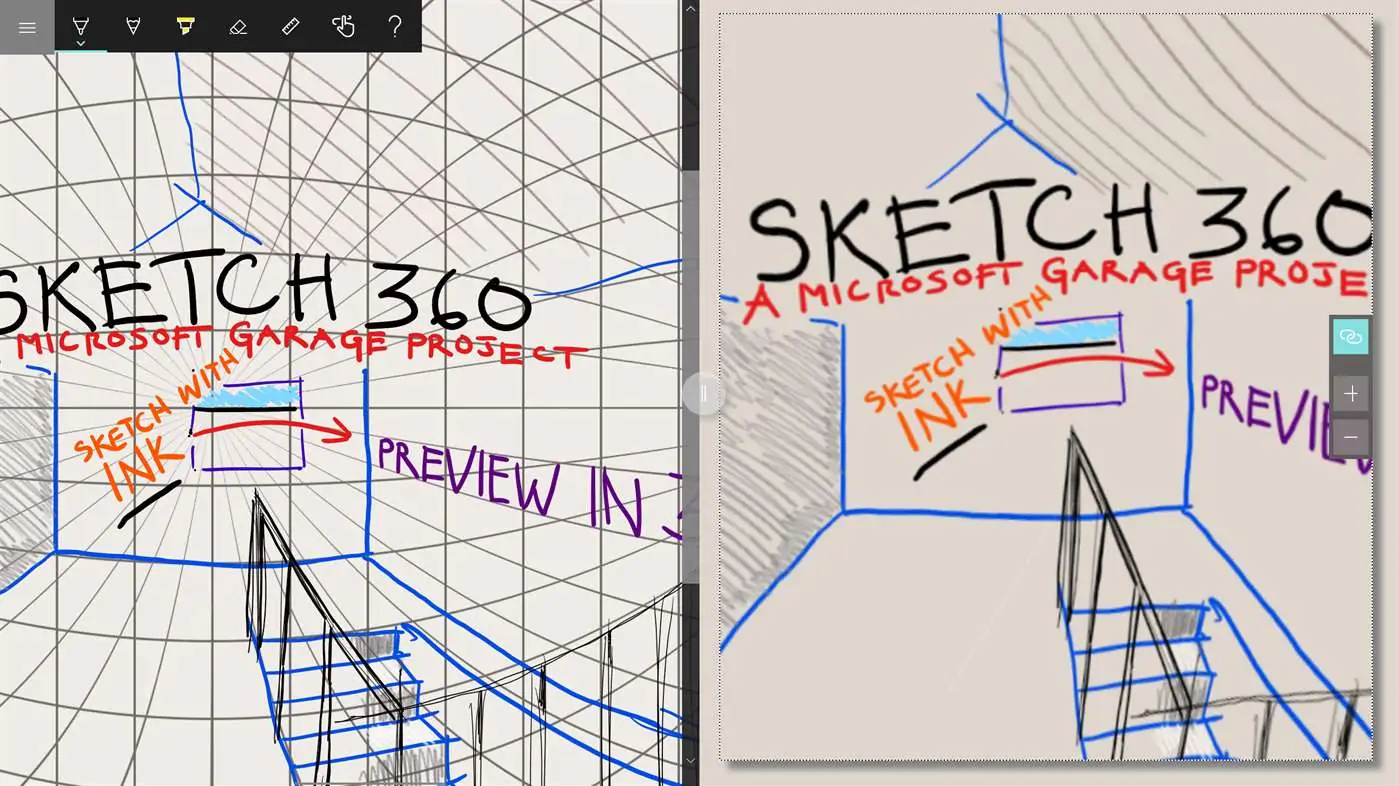 SKETCH 360
MICROSOFT GARAGE PROJECT
SKETCH WITH
INK
PREVIEW IN
SKETCH 360
A MICROSOFT GARAGE PROJE
SKETCH WITH
INK
PREVIE